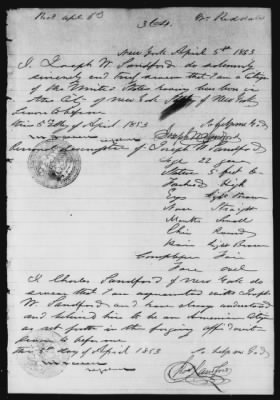 Recd Apl 6th
364.
New York April 5th 1853
I, Joseph W. Sandford do solemnly
sincerely and truly swear that I am a Citizen
of the United States having been born in
the City of New York State of New York
Sworn to before
this 5 day of April 1853 So help me God
Joseph W Sandford
Personal description of Joseph W Sandford
Age 22 years
Stature 5 feet 6
Forehead high
Eyes light Brown
Nose Straight
Mouth Small
Chin Round
Hair light Brown
Complexion Fair
Face oval
I Charles Sandford of New York do
swear that I am acquainted with Joseph
W. Sandford and have always understood
and believed him to be an American Citizen
as set forth in the forgoing affidavit
Sworn to before me
this 5th day of April 1853 So help me God
Chas Sandford